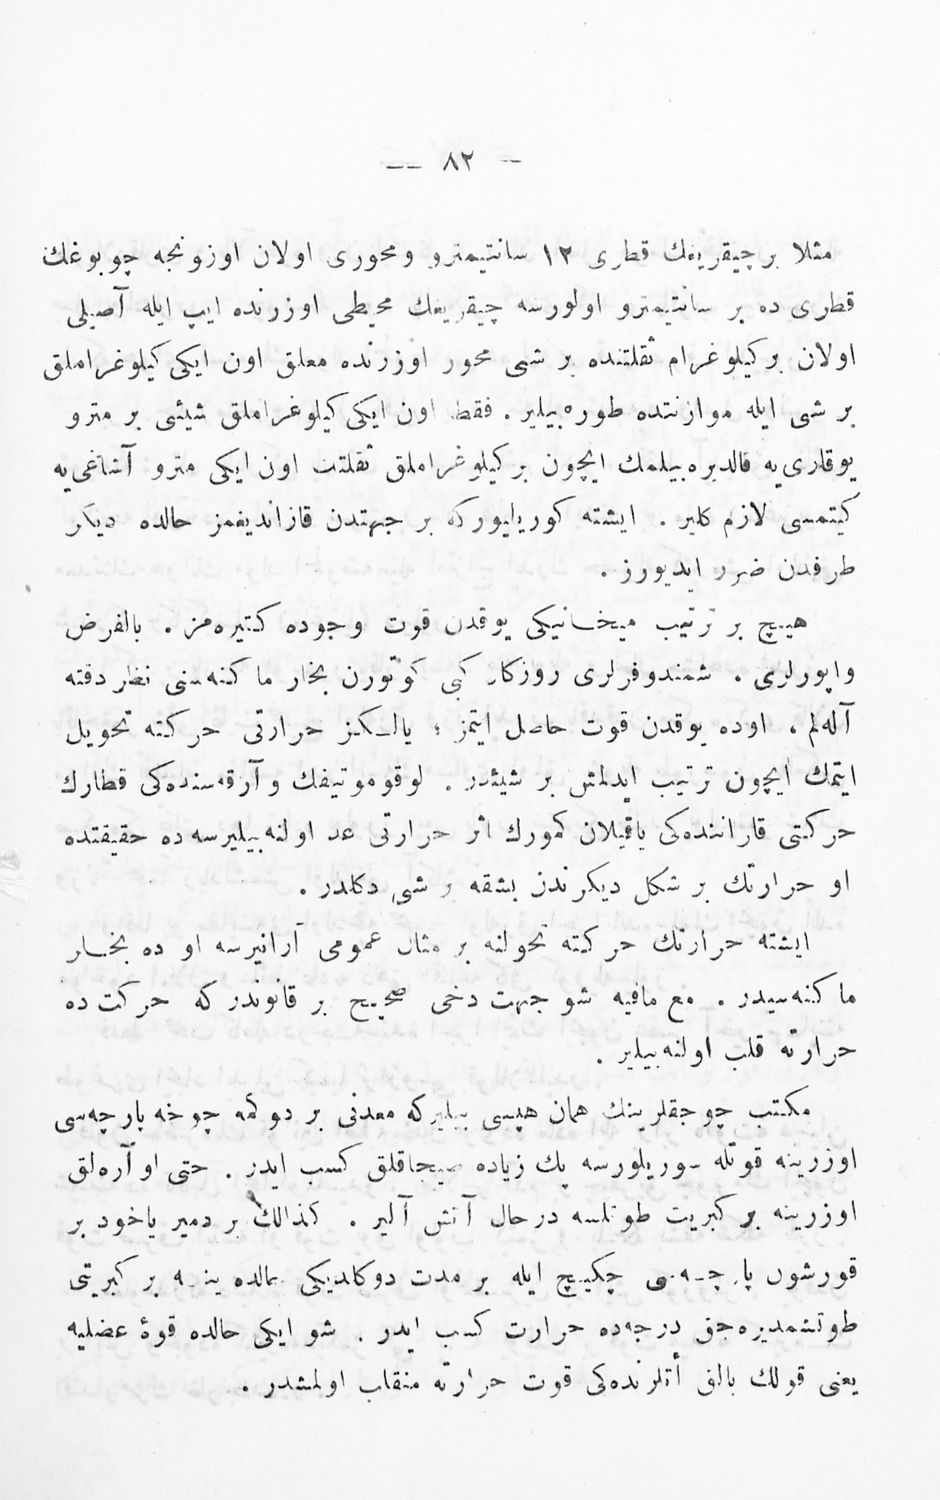 — ٨٢ —
مثلا بر چيقريغك قطرى ١٢ سانتيمترو ومحورى اولان اوزونجه چوبوغك
قطرى ده بر سانتيمترو اولورسه چيقريغك محيطى اوزرنده ايپ ايله آصيلى
اولان بر كيلوغرام ثقلتنده بر شى محور اوزرنده معلق اون ايكى كيلوغراملق
بر شى ايله موازنتده طوره بيلير . فقط اون ايكى كيلوغراملق شيئى بر مترو
يوقارى يه قالديره بيلمك ايچون بر كيلوغراملق ثقلتك اون ايكى مترو آشاغى يه
كيتمسى لازم كلير . ايشته كوريليوركه بر جهتدن قازانديغمز حالده ديكر
طرفدن ضرر ايديورز .
هيچ بر ترتيب ميخانيكى يوقدن قوت وجوده كتيره مز . بالفرض
واپورلرى ، شمندوفرلرى روزكار كبى كوتورن بخار ماكنه سنى نظر دقته
آله لم ، اوده يوقدن قوت حاصل ايتمز ؛ يالكز حرارتى حركته تحويل
ايتمك ايچون ترتيب ايدلمش بر شيئدر . لوقوموتيفك و آرقه سنده كى قطارك
حركتى قازاننده كى ياقيلان كمورك اثر حرارتى عد اولنه بيليرسه ده حقيقتده
او حرارتك بر شكل ديكرندن بشقه بر شى دكلدر .
ايشته حرارتك حركته تحولنه بر مثال عمومى آرانيرسه او ده بخار
ماكنه سيدر . مع مافيه شو جهت دخى صحيح بر قانوندر كه حركت ده
حرارته قلب اولنه بيلير .
مكتب چوجقلرينك همان هپسى بيليركه معدنى بر دوكمه چوخه پارچه سى
اوزرينه قوتله سوريلورسه پك زياده صيجاقلق كسب ايدر . حتى او آره لق
اوزرينه بر كبريت طوتلسه درحال آتش آلير . كذالك بر دمير ياخود بر
قورشون پارچه سى چكيچ ايله بر مدت دوكلديكى حالده ينه بر كبريتى
طوتشديره جق درجه ده حرارت كسب ايدر . شو ايكى حالده قوۀ عضليه
يعنى قولك بالق أتلرنده كى قوت حرارته منقلب اولمشدر .